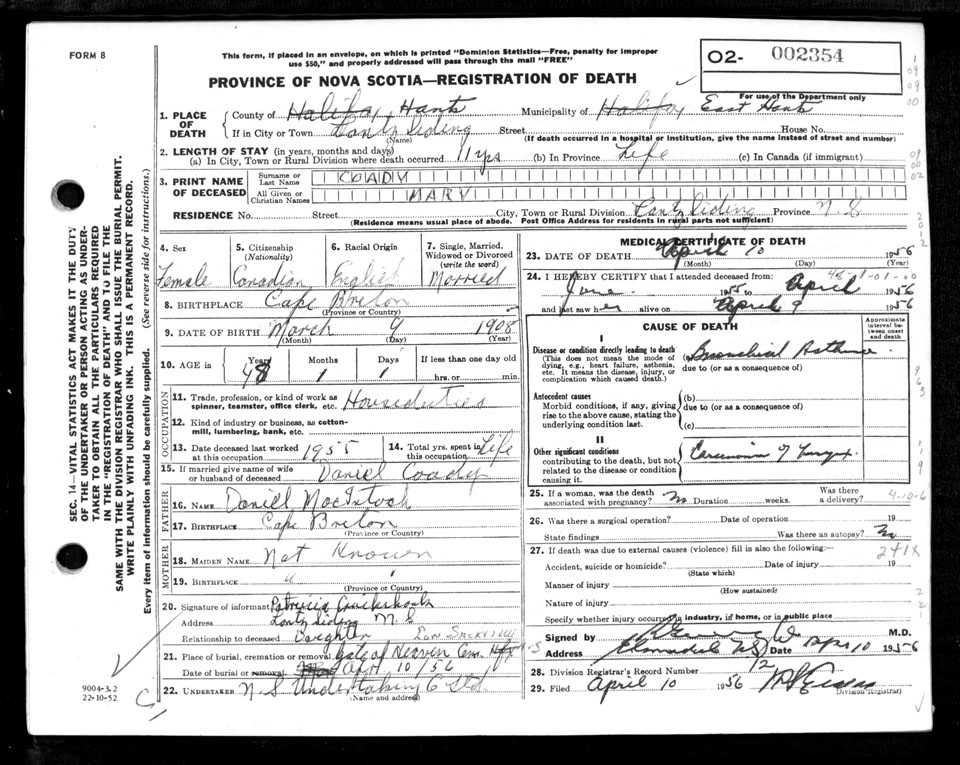 FORM 8
This form, if placed in an envelope, on which is printed "Dominion Statistics—Free, penalty for improper
use $50," and properly addressed will pass through the mail "FREE"
PROVINCE OF NOVA SCOTIA—REGISTRATION OF DEATH
02- 002354
For use of the Department only
1. PLACE OF DEATH
County of Halifax, Hants Municipality of Halifax East Hants
If in City or Town Lantz Siding Street House No.
(Name) (If death occurred in a hospital or institution, give the name instead of street and number)
2. LENGTH OF STAY (in years, months and days)
(a) In City, Town or Rural Division where death occurred 11 yrs (b) In Province Life (c) In Canada (if immigrant)
3. PRINT NAME OF DECEASED
Surname or Last Name COADY
All Given or Christian Names MARY
RESIDENCE No. Street City, Town or Rural Division Lantz Siding Province N.S
(Residence means usual place of abode. Post Office Address for residents in rural parts not sufficient)
4. Sex Female
5. Citizenship (Nationality) Canadian
6. Racial Origin English
7. Single, Married, Widowed or Divorced (write the word) Married
8. BIRTHPLACE Cape Breton
(Province or Country)
9. DATE OF BIRTH March 9 1908
(Month) (Day) (Year)
10. AGE in Years 48 Months 1 Days 1 If less than one day old
hrs. or min.
OCCUPATION
11. Trade, profession, or kind of work as spinner, teamster, office clerk, etc. Houseduties
12. Kind of industry or business, as cotton-mill, lumbering, bank, etc.
13. Date deceased last worked at this occupation 1955
14. Total yrs. spent in this occupation Life
15. If married give name of wife or husband of deceased Daniel Coady
FATHER
16. NAME Daniel MacIntosh
17. BIRTHPLACE Cape Breton
(Province or Country)
MOTHER
18. MAIDEN NAME Not Known
19. BIRTHPLACE
(Province or Country)
20. Signature of informant Patricia
Address Lantz Siding N.S
Relationship to deceased Daughter Low Sackville
21. Place of burial, cremation or removal Gate of Heaven Cem.
Date of burial or removal Apr 10/56
22. UNDERTAKER N.S Undertaking C Ltd
(Name and address)
MEDICAL CERTIFICATE OF DEATH
23. DATE OF DEATH April 10 1956
(Month) (Day) (Year)
24. I HEREBY CERTIFY that I attended deceased from:
June 1955 to April 1956
and last saw her alive on April 9 1956
CAUSE OF DEATH
Approximate interval between onset and death
I
Disease or condition directly leading to death
(This does not mean the mode of dying, e.g., heart failure, asthenia, etc. It means the disease, injury, or complication which caused death.)
(a) Bronchial Asthma
due to (or as a consequence of)
Antecedent causes
Morbid conditions, if any, giving rise to the above cause, stating the underlying condition last.
(b)
due to (or as a consequence of)
(c)
II
Other significant conditions
contributing to the death, but not related to the disease or condition causing it.
Carcinoma of
25. If a woman, was the death associated with pregnancy? No Duration weeks. Was there a delivery?
4-10-6
26. Was there a surgical operation? Date of operation 19
State findings Was there an autopsy? No
27. If death was due to external causes (violence) fill in also the following:—
241X
Accident, suicide or homicide? Date of injury 19
(State which)
Manner of injury
(How sustained)
Nature of injury
Specify whether injury occurred in industry, if home, or in public place
Signed by M.D.
Address Elmsdale NS Date Apr 10 1956
28. Division Registrar's Record Number 12
29. Filed April 10 1956
Division Registrar)
SEC. 14—VITAL STATISTICS ACT MAKES IT THE DUTY
OF THE UNDERTAKER OR PERSON ACTING AS UNDER-
TAKER TO OBTAIN ALL THE PARTICULARS REQUIRED
IN THE "REGISTRATION OF DEATH" AND TO FILE THE
SAME WITH THE DIVISION REGISTRAR WHO SHALL ISSUE THE BURIAL PERMIT.
WRITE PLAINLY WITH UNFADING INK. THIS IS A PERMANENT RECORD.
Every item of information should be carefully supplied. (See reverse side for instructions.)
9004-3.2
22-10-52